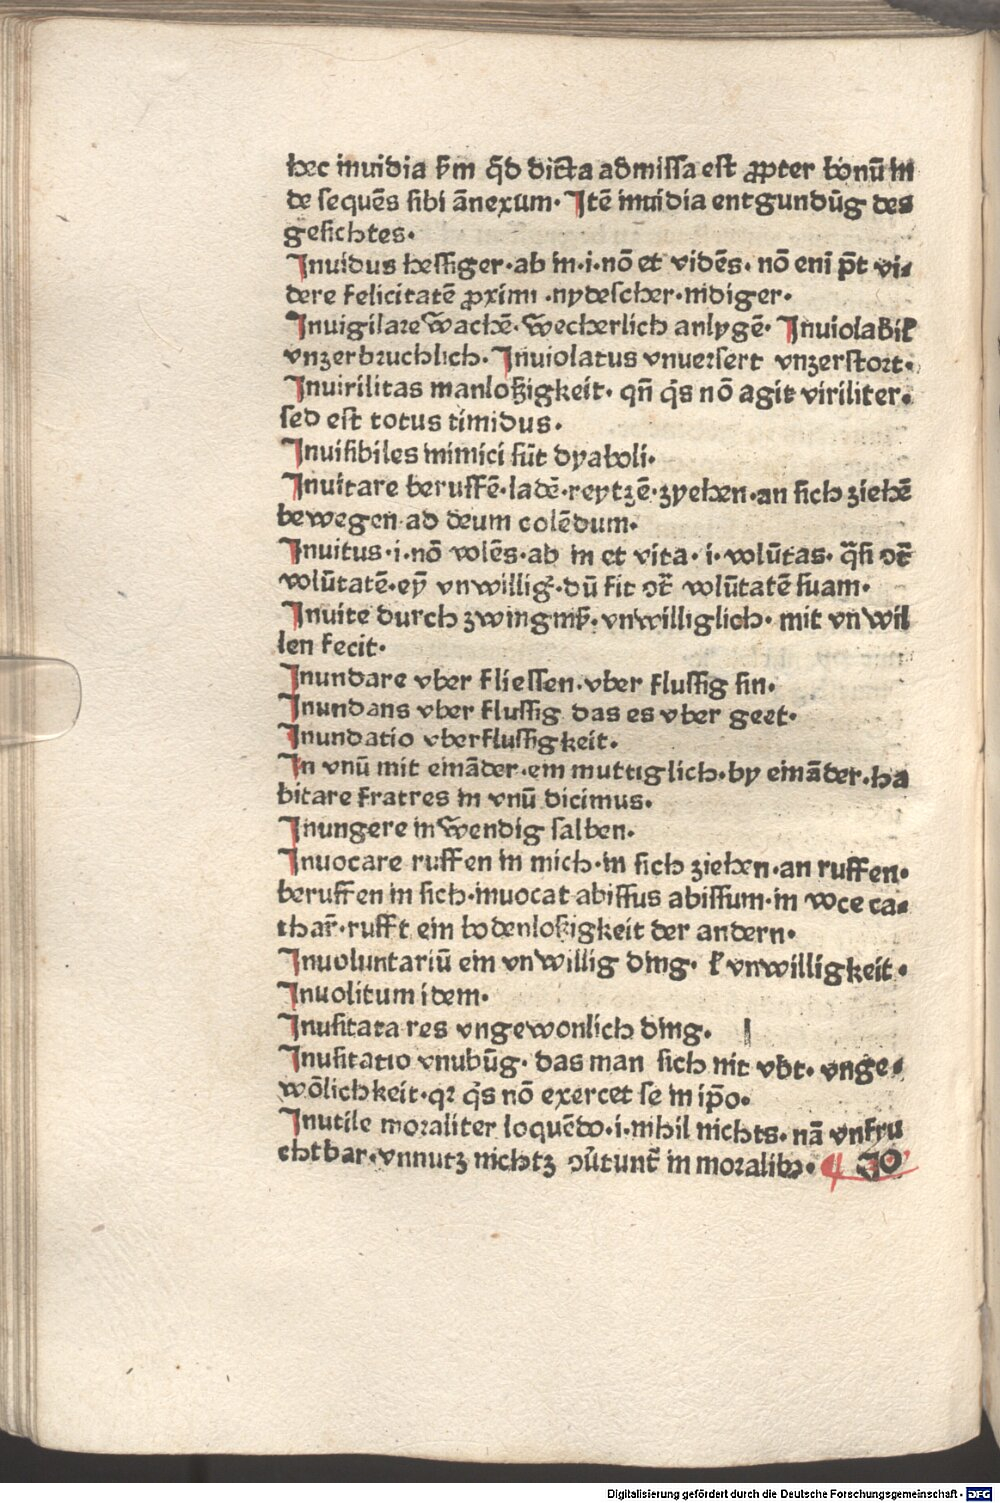 hec inuidia s̄m q̄d dicta admissa est ꝓpter bonū in
de sequēs sibi ānexum· Itē inuidia entgundūg des
gesichtes·
Inuidus hessiger·ab in·i·nō et vidēs· nō eni p̄t vi⸗
dere felicitatē ꝓximi ·nydescher·nidiger·
Inuigilare wachē· wecherlich anlygē· Inuiolabil
vnzerbruchlich· Inuiolatus vnuersert vnzerstort·
Inuirilitas manloßigkeit· qn̄ q̄s nō agit viriliter·
sed est totus timidus·
Inuisibiles inimici sūt dyaboli·
Inuitare beruffē·ladē·reytzē·zyehen·an sich ziehē
bewegen·ad deum colēdum·
Inuitus·i·nō volēs·ab in et vita·i·volūtas· q̄si ↄt̄
volūtatē·eȳ vnwilliḡ·dū fit ↄt̄ volūtatē suam·
Inuite durch zwingniß·vnwilliglich· mit vnwil
len fecit·
Inundare vber fliessen·vber flussig sin·
Inundans vber flussig das es vber geet·
Inundatio vberflussigkeit·
In vnū mit eināder·ein muttiglich·by eināder·ha
bitare fratres in vnū dicimus·
Inungere inwendig salben·
Inuocare ruffen in mich·in sich ziehen·an ruffen·
beruffen in sich·inuocat abissus abissum·in voce ca⸗
thar̄·rufft ein bodenloßigkeit der andern·
Inuoluntariū ein vnwillig ding· ł vnwilligkeit·
Inuolitum idem·
Inusitata res vngewonlich ding·
Inusitatio vnubūg· das man sich nit vbt· vnge⸗
wōlichkeit·qꝛ q̄s nō exercet se in ip̄o·
Inutile moraliter loquēdo·i·nihil nichts· nā vnfru
chtbar·vnnutz nichtz ↄūtunt̄ in moralibꝫ· JO